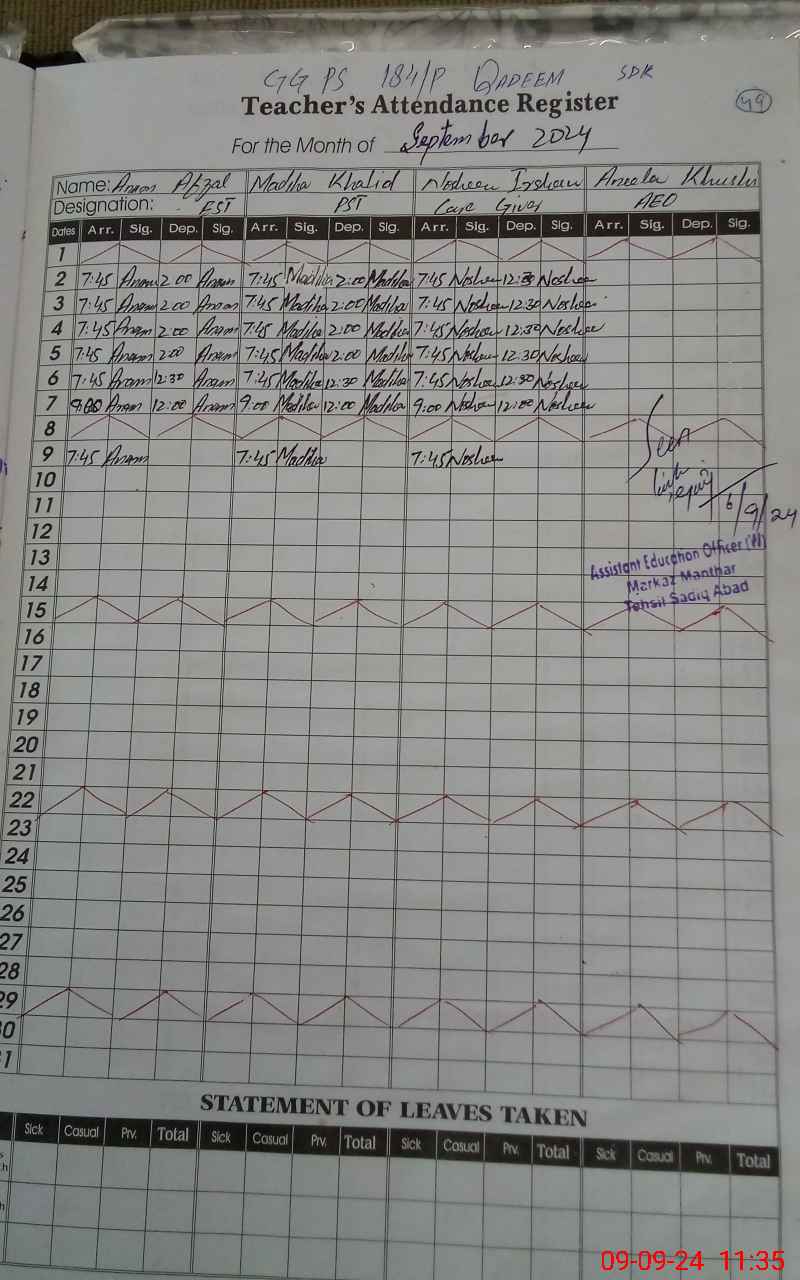 GG PS 184/P QADEEM SDK
Teacher's Attendance Register
49
For the Month of September 2024
Name: Anam Afzal Madiha Khalid Nosheen Irshaw Aneela Khushi
Designation: EST PST Care Giver AEO
Dates Arr. Sig. Dep. Sig. Arr. Sig. Dep. Sig. Arr. Sig. Dep. Sig. Arr. Sig. Dep. Sig.
1
2 7:45 Anam 2:00 Anam 7:45 Madiha 2:00 Madiha 7:45 Nosheen 12:30 Nosheen
3 7:45 Anam 2:00 Anam 7:45 Madiha 2:00 Madiha 7:45 Nosheen 12:30 Nosheen
4 7:45 Anam 2:00 Anam 7:45 Madiha 2:00 Madiha 7:45 Nosheen 12:30 Nosheen
5 7:45 Anam 2:00 Anam 7:45 Madiha 2:00 Madiha 7:45 Nosheen 12:30 Nosheen
6 7:45 Anam 12:30 Anam 7:45 Madiha 12:30 Madiha 7:45 Nosheen 12:30 Nosheen
7 9:00 Anam 12:00 Anam 9:00 Madiha 12:00 Madiha 9:00 Nosheen 12:00 Nosheen
8
Seen
9 7:45 Anam 7:45 Madiha 7:45 Nosheen
10
6/9/24
11
12
13
Assistant Education Officer (W)
14
Markaz Manthar
Tehsil Sadiq Abad
15
16
17
18
19
20
21
22
23
24
25
26
27
28
29
30
31
STATEMENT OF LEAVES TAKEN
Sick Casual Prv. Total Sick Casual Prv. Total Sick Casual Prv. Total Sick Casual Prv. Total
09-09-24 11:35